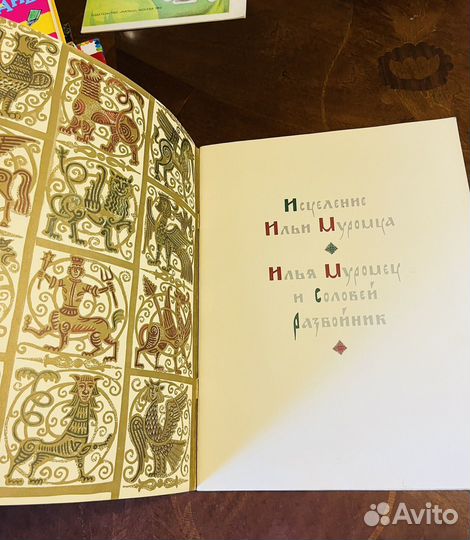 Исцеление
Ильи Муромца
Илья Муромец
и Соловей
Разбойник
Avito